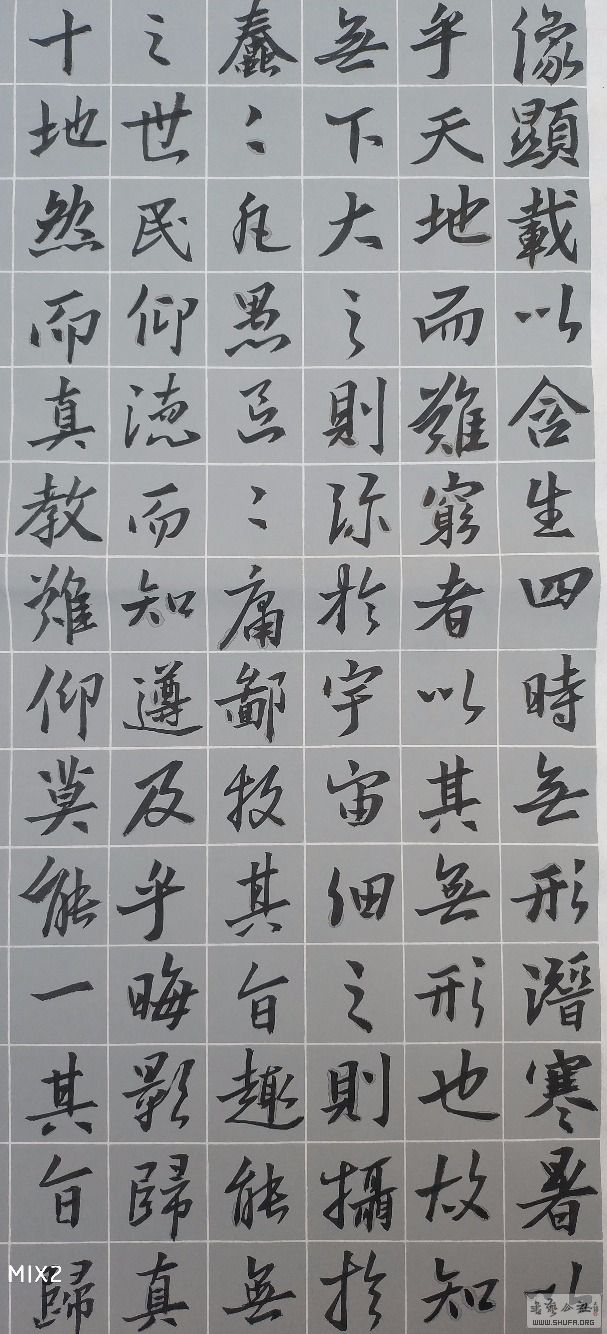 像顯載以含生四時無形潛寒暑以
乎天地而難窮者以其無形也故知
無下大之則弥於宇宙細之則攝於
蠢〻凡愚区〻庸鄙投其旨趣能無
之世民仰德而知遵及乎晦影歸真
十地然而真教難仰莫能一其旨歸
MIX2
WWW.SHUFA.ORG